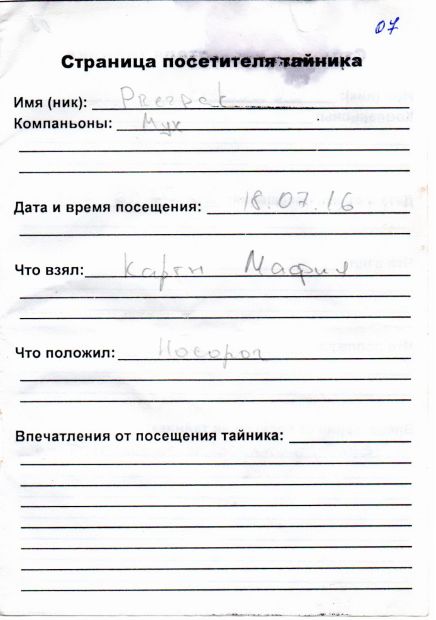 07
Страница посетителя тайника
Имя (ник):
Компаньоны: Мух
Дата и время посещения: 18.07.16
Что взял: Карты Мафия
Что положил: Носорог
Впечатления от посещения тайника: